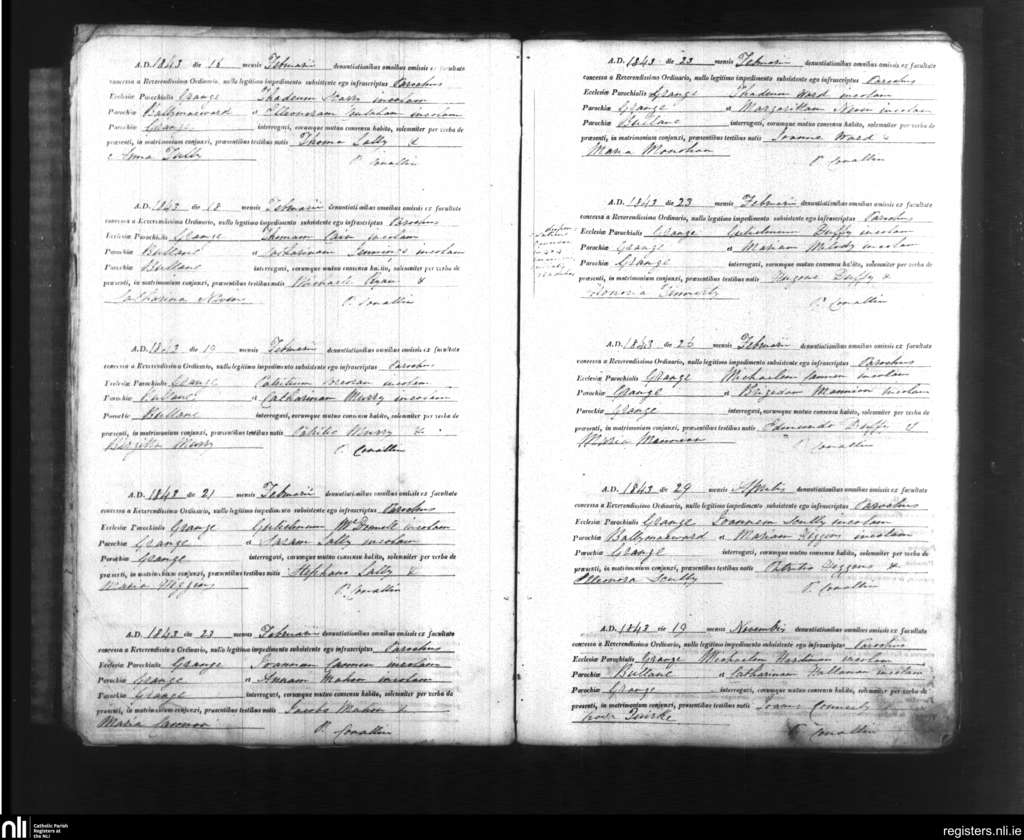 A.D. 1843 die 16 mensis Februarii denuntiationibus omnibus omissis ex facultate
concessa a Reverendissimo Ordinario, nullo legitimo impedimento subsistente ego infrascriptus Parochus
Ecclesiæ Parochialis Grange Thadeum incolam
Parochiæ Ballymacward et Elleonoram incolam
Parochiæ Grange interrogavi, eorumque mutuo consensu habito, solemniter per verba de
præsenti, in matrimonium conjunxi, præsentibus testibus notis Thoma Lally &
Anna Tully
P. Conallin
A.D. 1843 die 18 mensis Februarii denuntiationibus omnibus omissis ex facultate
concessa a Reverendissimo Ordinario, nullo legitimo impedimento subsistente ego infrascriptus Parochus
Ecclesiæ Parochialis Grange Thomam incolam
Parochiæ Bullane et Catharinam Jennings incolam
Parochiæ Bullane interrogavi, eorumque mutuo consensu habito, solemniter per verba de
præsenti, in matrimonium conjunxi, præsentibus testibus notis Michaele &
Catharina
P. Conallin
A.D. 1843 die 19 mensis Februarii denuntiationibus omnibus omissis ex facultate
concessa a Reverendissimo Ordinario, nullo legitimo impedimento subsistente ego infrascriptus Parochus
Ecclesiæ Parochialis Grange incolam
Parochiæ Bullane et Catharinam Murry incolam
Parochiæ Bullane interrogavi, eorumque mutuo consensu habito, solemniter per verba de
præsenti, in matrimonium conjunxi, præsentibus testibus notis Murry &
Murry
P. Conallin
A.D. 1843 die 21 mensis Februarii denuntiationibus omnibus omissis ex facultate
concessa a Reverendissimo Ordinario, nullo legitimo impedimento subsistente ego infrascriptus Parochus
Ecclesiæ Parochialis Grange Gulielmum incolam
Parochiæ Grange et Lally incolam
Parochiæ Grange interrogavi, eorumque mutuo consensu habito, solemniter per verba de
præsenti, in matrimonium conjunxi, præsentibus testibus notis Stephano Lally &
Maria Higgens
P. Conallin
A.D. 1843 die 23 mensis Februarii denuntiationibus omnibus omissis ex facultate
concessa a Reverendissimo Ordinario, nullo legitimo impedimento subsistente ego infrascriptus Parochus
Ecclesiæ Parochialis Grange Joannem incolam
Parochiæ Grange et Annam Mahon incolam
Parochiæ Grange interrogavi, eorumque mutuo consensu habito, solemniter per verba de
præsenti, in matrimonium conjunxi, præsentibus testibus notis Jacobo Mahon &
Maria
P. Conallin
A.D. 1843 die 23 mensis Februarii denuntiationibus omnibus omissis ex facultate
concessa a Reverendissimo Ordinario, nullo legitimo impedimento subsistente ego infrascriptus Parochus
Ecclesiæ Parochialis Grange Thadeum Ward incolam
Parochiæ Grange et Margaritam incolam
Parochiæ Bullane interrogavi, eorumque mutuo consensu habito, solemniter per verba de
præsenti, in matrimonium conjunxi, præsentibus testibus notis Joanne Ward &
Maria Monohan
P. Conallin
A.D. 1843 die 23 mensis Februarii denuntiationibus omnibus omissis ex facultate
concessa a Reverendissimo Ordinario, nullo legitimo impedimento subsistente ego infrascriptus Parochus
Ecclesiæ Parochialis Grange Gulielmum Duffy incolam
Parochiæ Grange et Mariam Melody incolam
Parochiæ Grange interrogavi, eorumque mutuo consensu habito, solemniter per verba de
præsenti, in matrimonium conjunxi, præsentibus testibus notis Eugene Duffy &
Honoria
P. Conallin
A.D. 1843 die 26 mensis Februarii denuntiationibus omnibus omissis ex facultate
concessa a Reverendissimo Ordinario, nullo legitimo impedimento subsistente ego infrascriptus Parochus
Ecclesiæ Parochialis Grange Michaelem incolam
Parochiæ Grange et Brigidam Mannion incolam
Parochiæ Grange interrogavi, eorumque mutuo consensu habito, solemniter per verba de
præsenti, in matrimonium conjunxi, præsentibus testibus notis Edmundo Duffe &
Maria Mannion
P. Conallin
A.D. 1843 die 29 mensis Aprilis denuntiationibus omnibus omissis ex facultate
concessa a Reverendissimo Ordinario, nullo legitimo impedimento subsistente ego infrascriptus Parochus
Ecclesiæ Parochialis Grange Joannem Scully incolam
Parochiæ Ballymacward et Mariam Higgens incolam
Parochiæ Grange interrogavi, eorumque mutuo consensu habito, solemniter per verba de
præsenti, in matrimonium conjunxi, præsentibus testibus notis Patritio Higgens &
Elleonora Scully
P. Conallin
A.D. 1843 die 19 mensis Novembris denuntiationibus omnibus omissis ex facultate
concessa a Reverendissimo Ordinario, nullo legitimo impedimento subsistente ego infrascriptus Parochus
Ecclesiæ Parochialis Grange Michaelem incolam
Parochiæ Bullane et Catharinam incolam
Parochiæ Grange interrogavi, eorumque mutuo consensu habito, solemniter per verba de
præsenti, in matrimonium conjunxi, præsentibus testibus notis Joanne &
Quirke
P. Conallin
nli Catholic Parish
Registers at
the NLI
registers.nli.ie